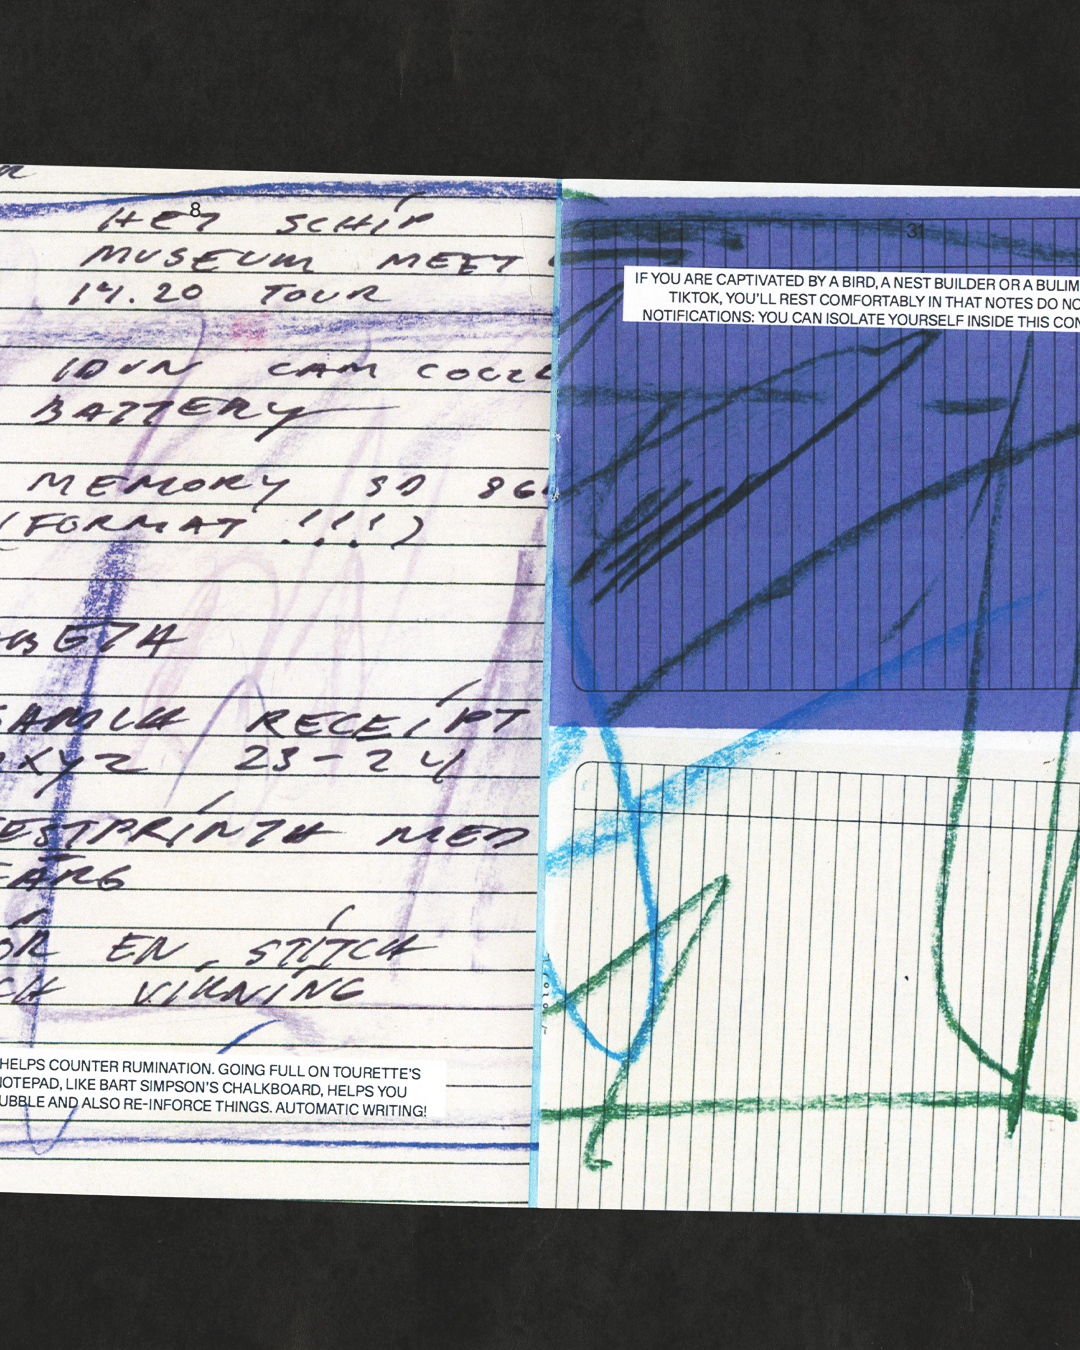 8
HET SCHIP
MUSEUM MEET
14.20 TOUR
IDUN CAM
BATTERY
MEMORY SD
(FORMAT !!!)
RECEIPT
XYZ 23-24
MED
FÄRG
EN STITCH
VIKNING
HELPS COUNTER RUMINATION. GOING FULL ON TOURETTE'S
NOTEPAD, LIKE BART SIMPSON'S CHALKBOARD, HELPS YOU
UBBLE AND ALSO RE-INFORCE THINGS. AUTOMATIC WRITING!
31
IF YOU ARE CAPTIVATED BY A BIRD, A NEST BUILDER OR A BULIM
TIKTOK, YOU'LL REST COMFORTABLY IN THAT NOTES DO NO
NOTIFICATIONS: YOU CAN ISOLATE YOURSELF INSIDE THIS CON